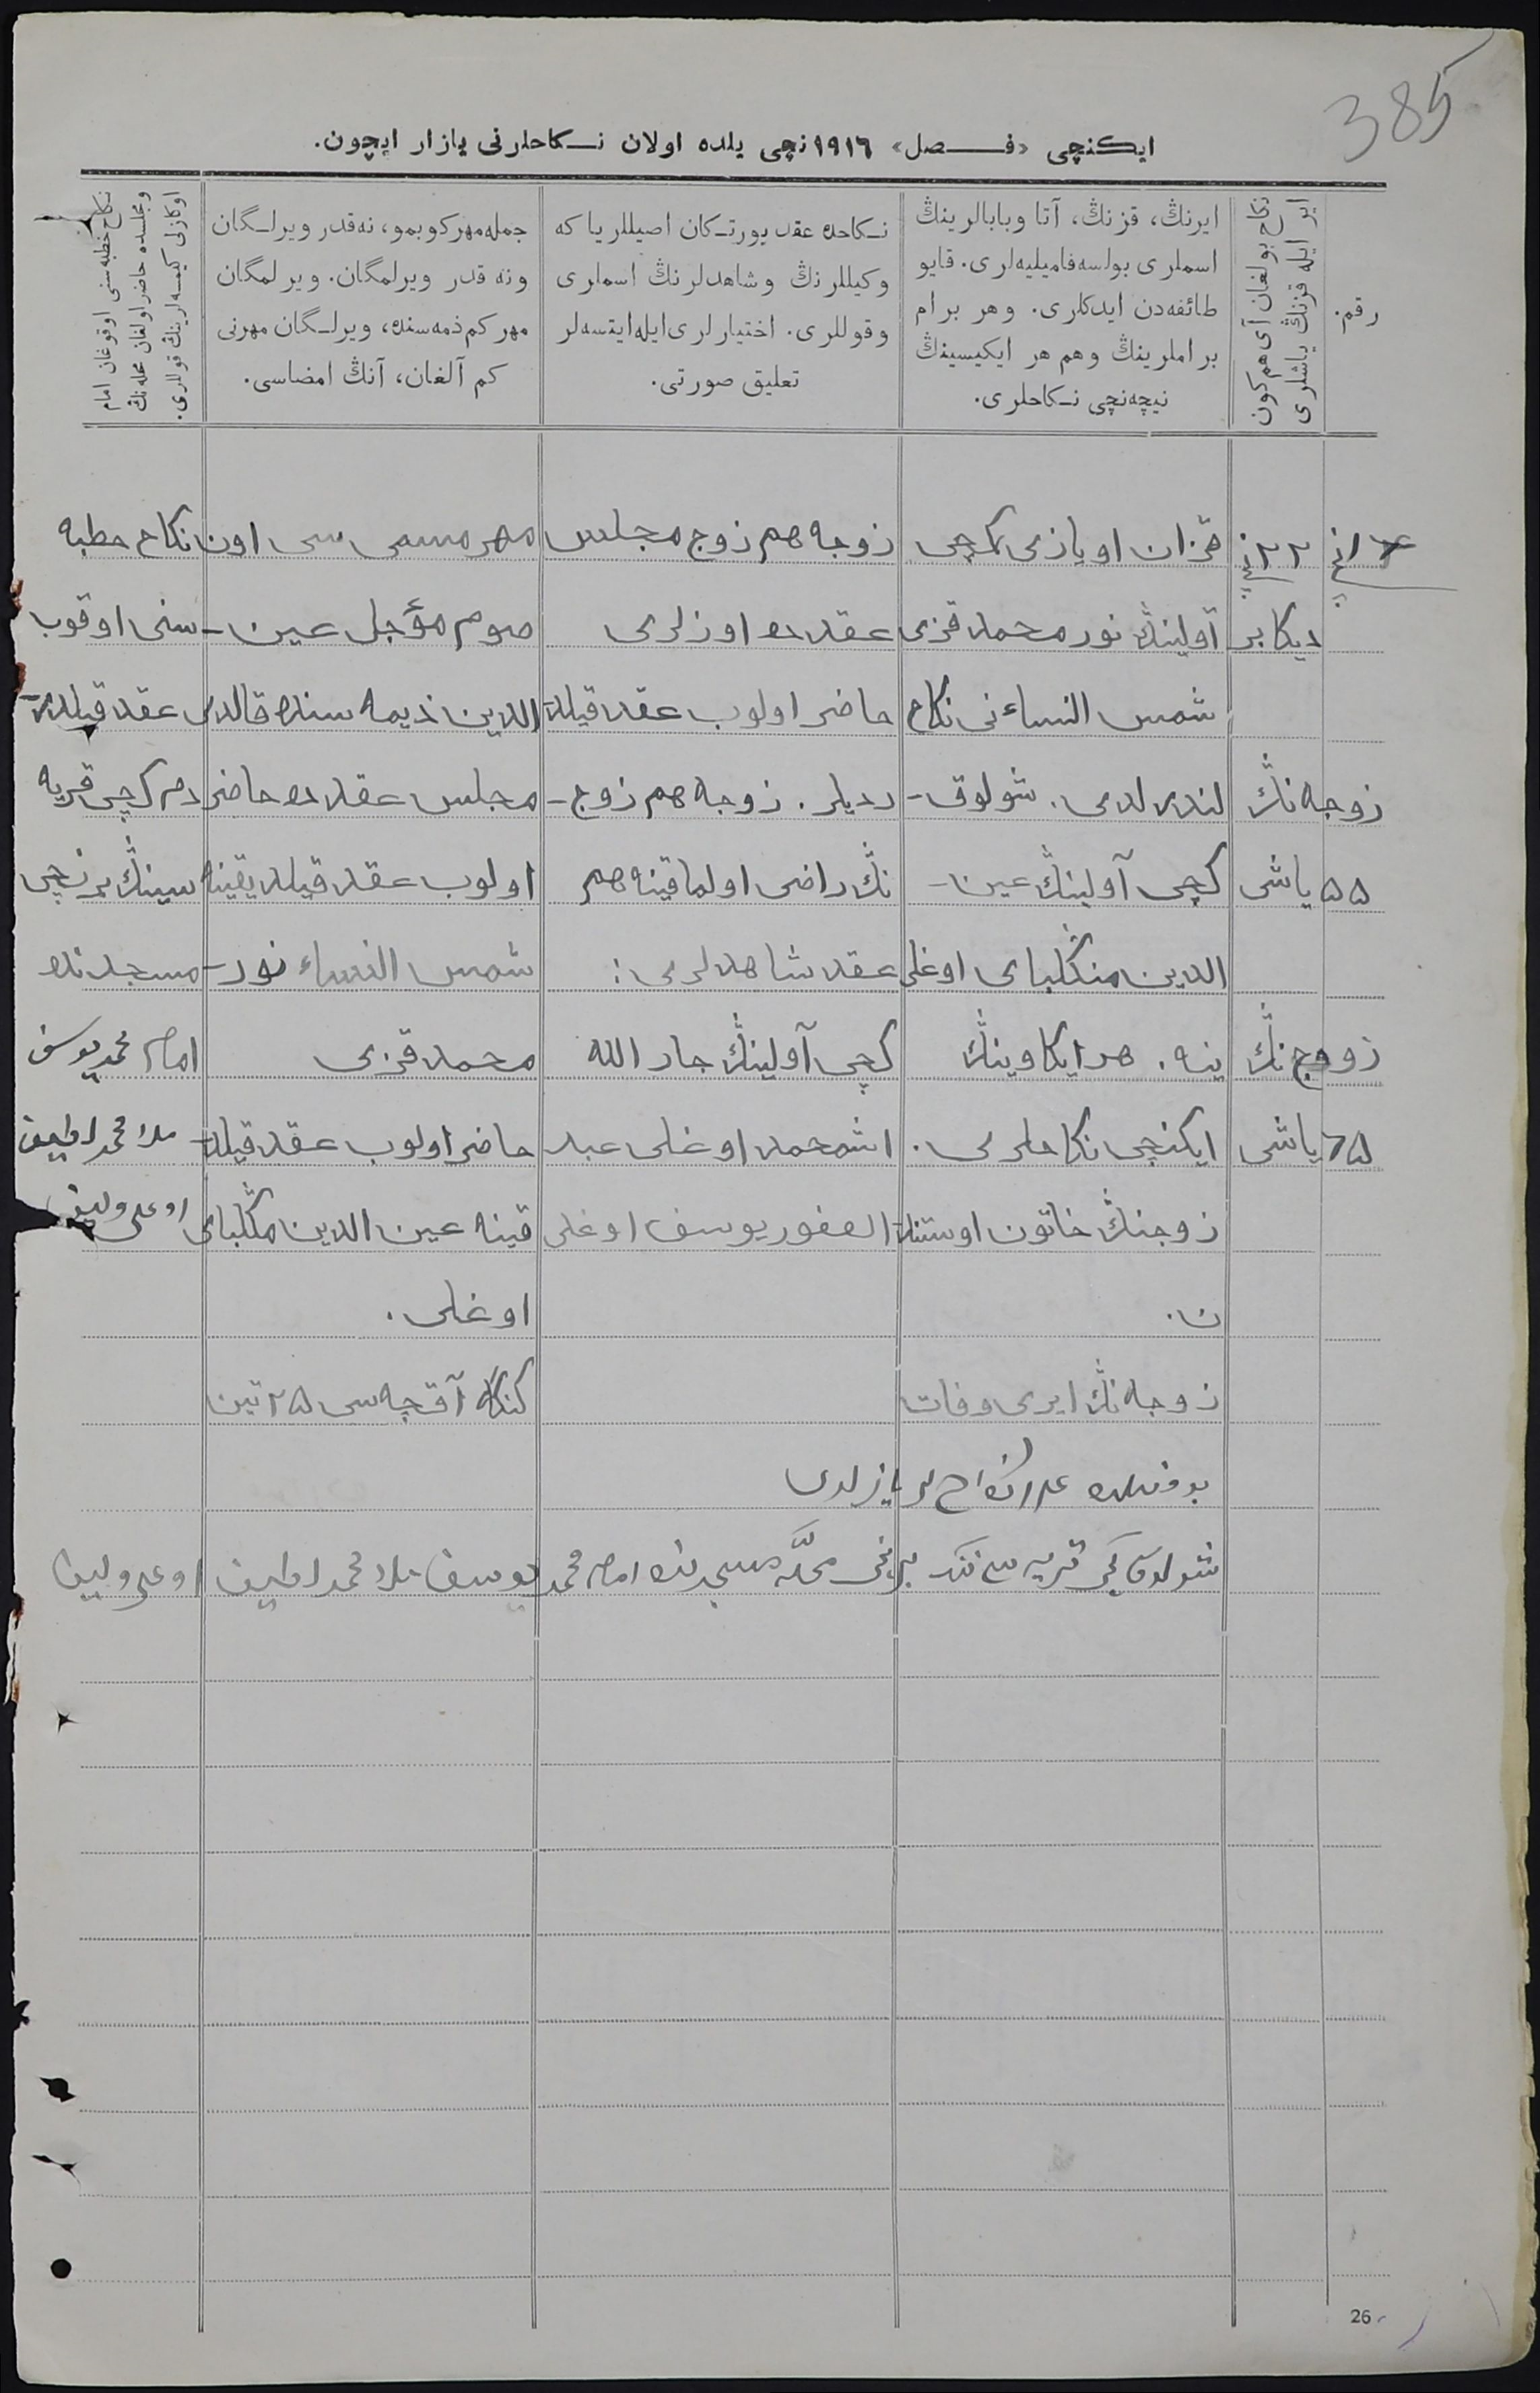 385
ایكنچی «فـصل» ١٩١٦ نچی یلده اولان نـكاحلرنی یازار ایچون.
رقم.
نكاح بولغان آی هم كون
ایر ایله قزنڭ یاشلری
ایرنڭ، قزنڭ، آتا وبابالرینڭ
اسملری بولسه فامیلیه‌لری. قایو
طائفه‌دن ایدكلری. وهر برام
براملرینڭ وهم هر ایكیسینڭ
نیچه‌نچی نـكاحلری.
نـكاحده عقد یورتـكان اصیللر یا كه
وكیللرنڭ وشاهدلرنڭ اسملری
وقوللری. اختیارلری ایله ایتسه‌لر
تعلیق صورتی.
جمله مهر كوبمو، نه‌قدر ویرلـگان
ونه قدر ویرلمگان. ویرلمگان
مهر كم ذمه‌سنده، ویرلـگان مهرنی
كم آلغان، آنڭ امضاسی.
نكاح خطبه سنی اوقوغان امام
ومجلسده حاضر اولغان محله‌نڭ
اوكازلی كیمسه‌لرینڭ قوللری.
٢٢ نچی
دیكابر
زوجه نڭ
٥٥ یاشی
زووج نڭ
٦٥ یاشی
قزان اویازی كمچی
آولینڭ نورمحمد قزی
شمس النساء نی نكاح
لندرلدی. شولوق-
كچی آولینڭ عین-
الدین منڭلبای اوغلی
ینه. هر ایكاوینڭ
ایكنچی نكاحلری.
زوجنڭ خاتون اوستنه
ن.
زوجه نڭ ایری وفات
زوجه هم زوج مجلس
عقدده اوزلری
حاضر اولوب عقد قیلد
ردیلر. زوجه هم زوج-
نڭ راضی اولماقینه هم
عقد شاهدلری:
كچی آولینڭ جار الله
اشمحمد اوغلی عبد
الغفور یوسف اوغلی
مهر مسمی سی اون
صوم مؤجل عین-
الدین ذیمه سنده قالدی
مجلس عقدده حاضر
اولوب عقد قیلدیقینه
شمس النساء نور-
محمد قزی
حاضر اولوب عقد قیلد-
قینه عین الدین منڭلبای
اوغلی.
كنگه آقچه سی ٢٥ تین
نكاح خطبه
سنی اوقوب
عقد قیلد
دم كچی قریه
سینڭ برنچی
مسجدنده
امام محمد یوسف
ملا محمد لطیف
اوغلی ولیف
یازلدی
شولوق كچی قریه سی ننڭ برنچی محلّه مسجدنده امام محمد یوسف ملا محمد لطیف اوغلی ولیف
26